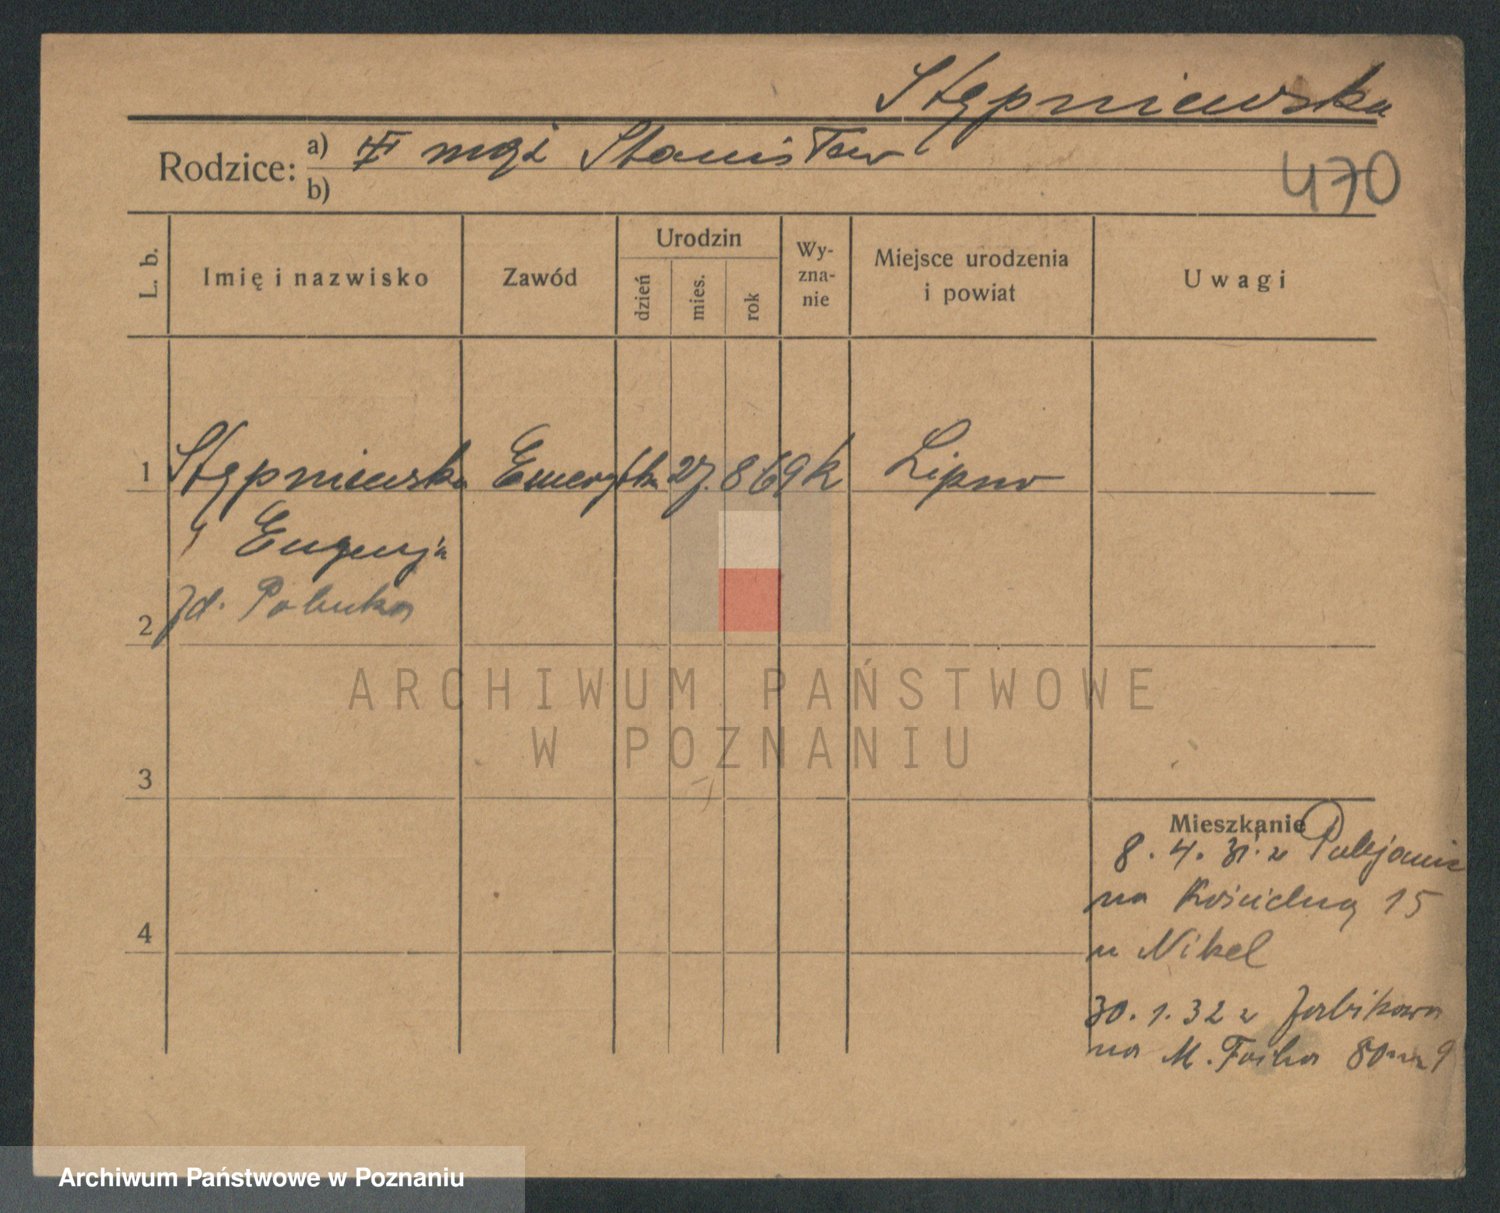 Stępniewska
Rodzice: a) mąż Stanisław
b)
470
L. b. Imię i nazwisko Zawód Urodzin dzień mies. rok Wy-zna-nie Miejsce urodzenia i powiat Uwagi
1 Stępniewska Emerytka 27. 8 69 k Lipno
" Eugenja
2
3
ARCHIWUM PAŃSTWOWE
W POZNANIU
Mieszkanie
8. 4. 31. z
na Kościelną 15
u Nikel
4
30. 1. 32 z Żabikowa
na M. Focha 80 m 9
Archiwum Państwowe w Poznaniu